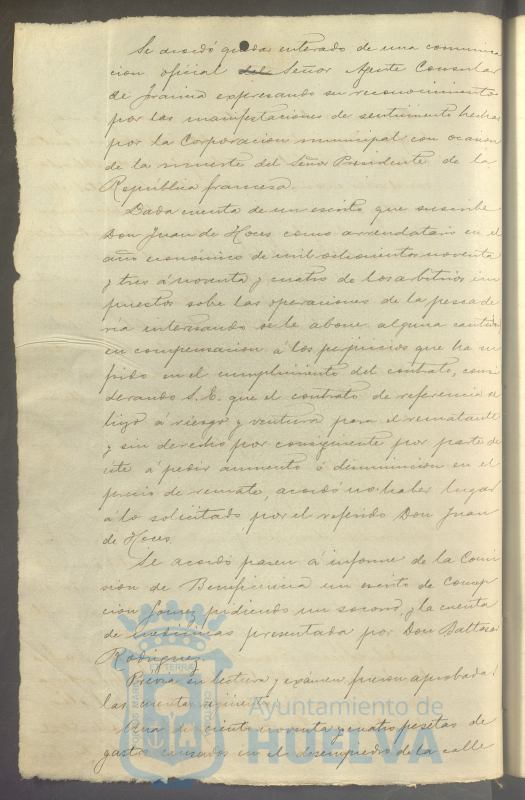 Se acordó quedar enterado de una comunica
cion oficial del Señor Agente Consular
de Francia expresando su reconocimiento
por las manifestaciones de sentimiento hechas
por la Corporacion municipal con ocasion
de la muerte del Señor Presidente de la
República francesa.
Dada cuenta de un escrito que suscribe
Don Juan de Hoces como arrendatario en el
año económico de mil ochocientos noventa
y tres á noventa y cuatro de los arbitrios im
puestos sobre las operaciones de la pescade
ria interesando se le abone alguna cantidad
en compensacion á los perjuicios que ha su
frido en el cumplimiento del contrato, consi
derando S. E. que el contrato de referencia se
hizo á riesgo y ventura para el rematante
y sin derecho por consiguiente por parte de
este á pedir aumento ó disminucion en el
precio de remate, acordó no haber lugar
á lo solicitado por el referido Don Juan
de Hoces.
Se acordó pasen á informe de la Comi
sion de Beneficencia un escrito de Concep
cion Gomez pidiendo un socorro y la cuenta
de medicinas presentada por Don Baltasar
Rodriguez.
Previa su lectura y exámen fueron aprobadas
las cuentas siguientes:
Una de ciento noventa y cuatro pesetas de
gastos causados en el desempiedro de la calle
Ayuntamiento de
HUELVA